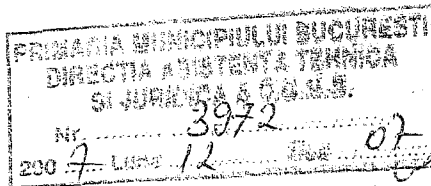 PRIMARIA MUNICIPIULUI BUCURESTI
DIRECTIA ASISTENTA TEHNICA
SI JURIDICA A C.G.M.B.
Nr. 3972
200 7 LUNA 12 ZIUA 07